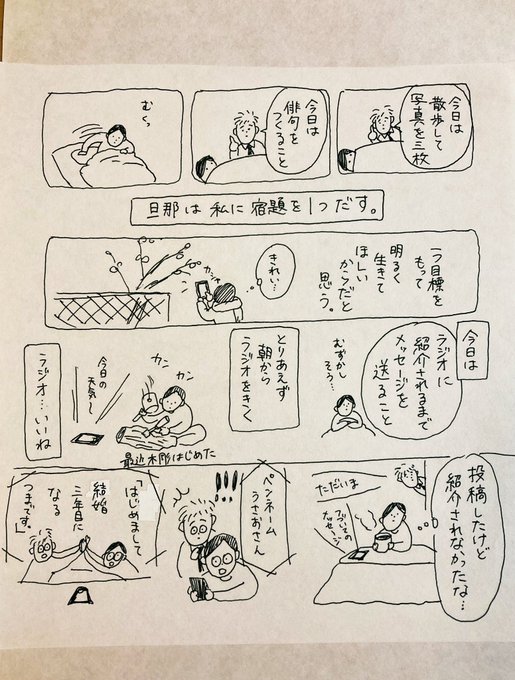 今日は
散歩して
写真を三枚
今日は
俳句を
つくること
むくっ
旦那は私に宿題を1つだす。
1つ目標を
もって
明るく
生きて
ほしい
からだと
思う。
きれい…
カシャ
今日は
ラジオに
紹介されるまで
メッセージを
送ること
むずかし
そう…
とりあえず
朝から
ラジオをきく
カン カン
今日の
天気〜
最近木彫はじめた
ラジオ…いいね
投稿したけど
紹介されなかったな…
ただいま
つづいての
メッセージ
ペンネーム
うさおさん
!!!!
「はじめまして
結婚
三年目に
なる
つまです。」